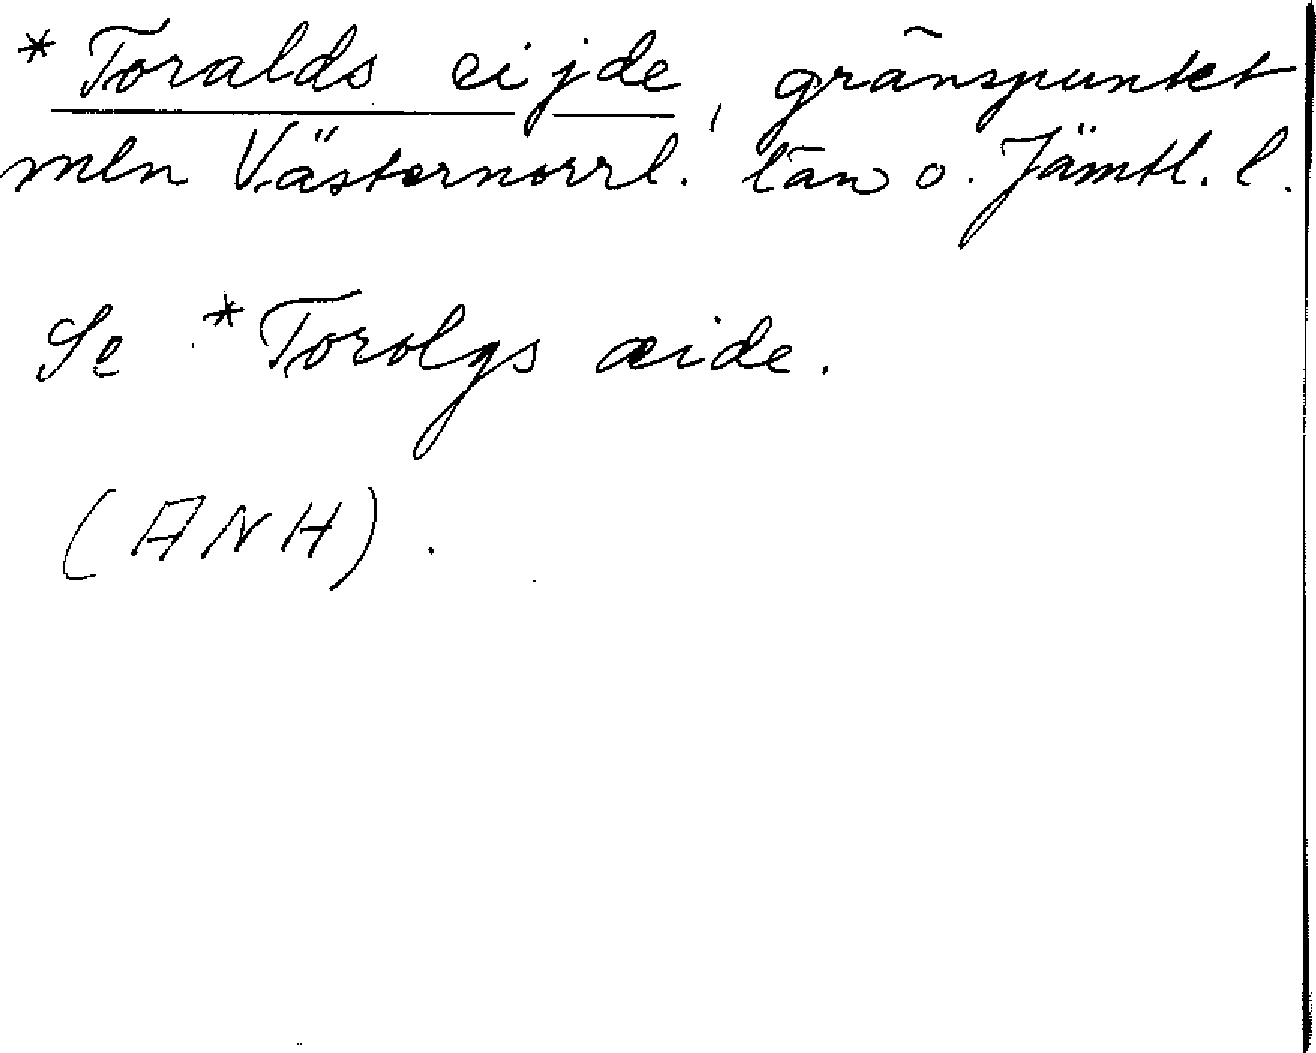 *Toralds eijde, gränspunkt
mln Västernorrl. län o. Jämtl. l.
Se *Torolgs æide.
(ANH).